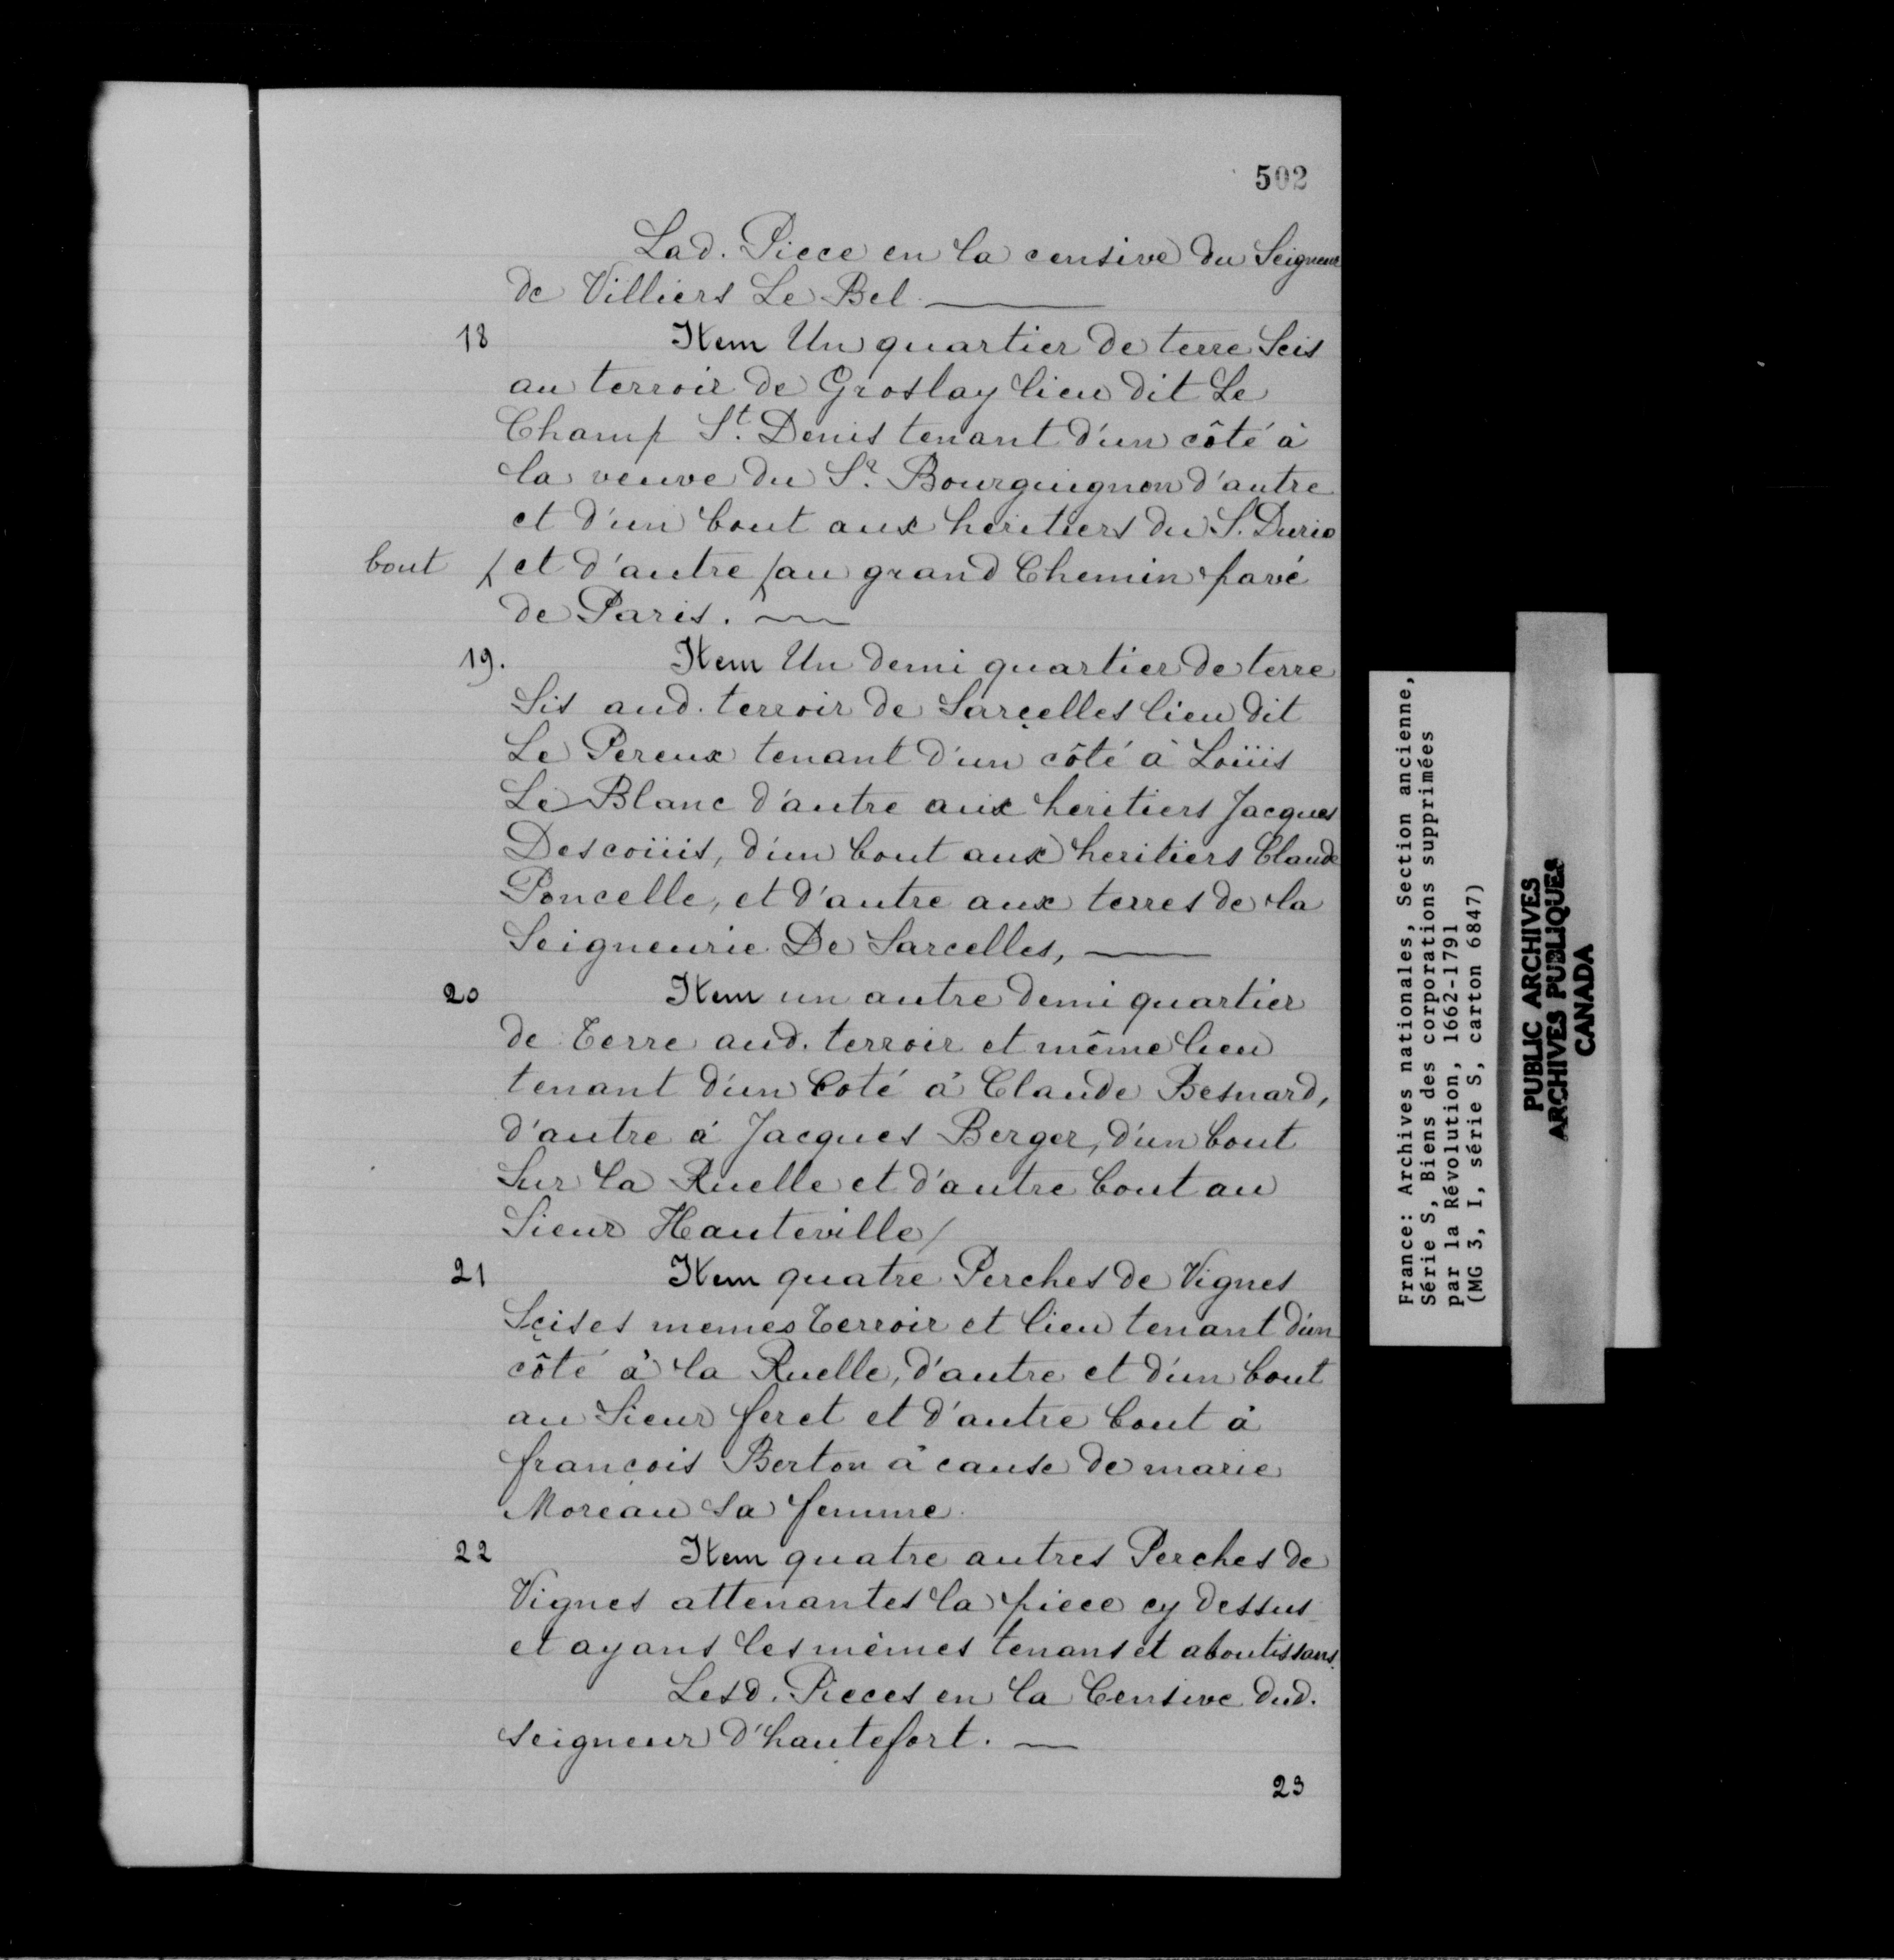 502
Lad. Piece en la censive du Seigneur
de Villiers Le Bel.
18 Item Un quartier de terre Seis
au terroir de Groslay lieu dit Le
Champ St. Denis tenant d'un côté à
la veuve du Sr. Bourguignon d'autre
et d'un bout aux heritiers du S.
bout / et d'autre / au grand Chemin pavé
de Paris.
19. Item Un demi quartier de terre
Sis aud. terroir de Sarcelles lieu dit
Le Pereux tenant d'un côté à Loüis
Le Blanc d'autre aux heritiers Jacques
Descoüis, d'un bout aux heritiers Claude
Poncelle, et d'autre aux terres de la
Seigneurie De Sarcelles,
20 Item un autre demi quartier
de Terre aud. terroir et même lieu
tenant d'un Coté à Claude Besnard,
d'autre á Jacques Berger, d'un bout
Sur la Ruelle et d'autre bout au
Sieur Hauteville /
21 Item quatre Perches de Vignes
Scises memes Terroir et lieu tenant d'un
côté à la Ruelle, d'autre et d'un bout
au Sieur feret et d'autre bout à
francois Berton à cause de marie
Moreau sa femme.
22 Item quatre autres Perches de
Vignes attenantes la piece cy dessus
et ayans les mêmes tenans et aboutissans.
Lesd. Pieces en la Censive dud.
seigneur d'hautefort.
23
France: Archives nationales, Section ancienne,
Série S, Biens des corporations supprimées
par la Révolution, 1662-1791
(MG 3, I, série S, carton 6847)
PUBLIC ARCHIVES
ARCHIVES PUBLIQUES
CANADA